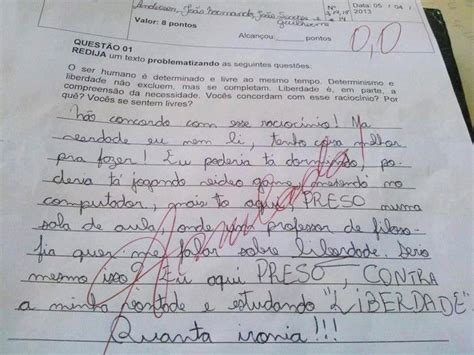 Anderson, João Fernando, João
Guilherme
Nº
Data: 05 / 04 / 2013
Valor: 8 pontos
Alcançou: pontos
0,0
QUESTÃO 01
REDIJA um texto problematizando as seguintes questões:
O ser humano é determinado e livre ao mesmo tempo. Determinismo e
liberdade não excluem, mas se completam. Liberdade é, em parte, a
compreensão da necessidade. Vocês concordam com esse raciocínio? Por
quê? Vocês se sentem livres?
Não concordo com esse raciocínio! Na
verdade eu nem li, tenho coisa melhor
pra fazer! Eu poderia tá dormindo, po-
deria tá jogando video game, metendo no
computador, mais to aqui, PRESO numa
sala de aula, onde um professor de filoso-
fia quer me falar sobre liberdade. Serio
mesmo isso? Eu aqui PRESO, CONTRA
a minha vontade e estudando "LIBERDADE"
Quanta ironia!!!
Anulada